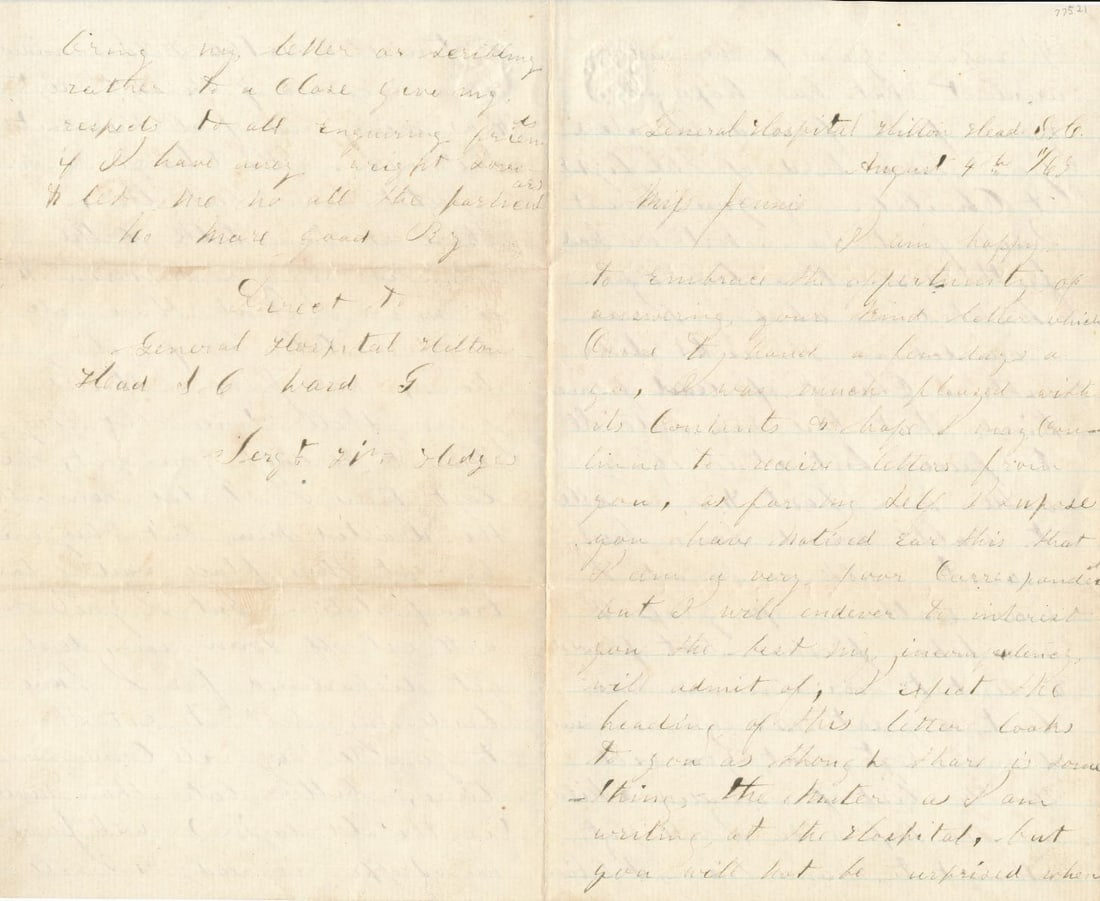 77521
General Hospital Hilton Head S. C.
August 4th /65
Miss Jennie
I am happy
to embrace the oppertunity of
answering your kind letter which
Came to hand a few days a
go, I was much pleased with
its Contents & hope I may Con-
tinue to receive letters from
you, as for my self I supose
you have noticed ear this that
I am a very poor Correspondent
but I will endever to interest
you the best my incompetency
will admit of, I expect the
heading of this letter looks
to you as though thare is some
thing the mater as I am
writing at the Hospital, but
you will not be surprised when
bring my letter or scribling
rather to a Close give my
respects to all enquiring friends
if I have any wright soon
& let me no all the particulars
No More good By
Direct to
General Hospital Hilton
Head S C Ward G
Sergt Wm Hedges